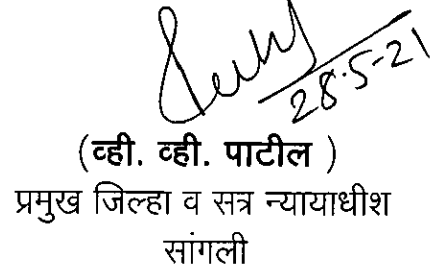 28.5-21
(व्ही. व्ही. पाटील )
प्रमुख जिल्हा व सत्र न्यायाधीश
सांगली